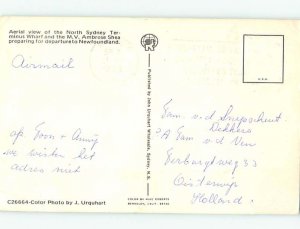 Aerial view of the North Sydney Ter-
minous Wharf and the M.V. Ambrose Shea
preparing for departure to Newfoundland.
Airmail
op Toon + Annig
we wisten het
adres niet
C26664-Color Photo by J. Urquhart
Published by John Urquhart Wholesale, Sydney, N.S.
COLOR BY MIKE ROBERTS
BERKELEY, CALIF. 94710
Fam. v.d. Snepscheut
Dekkers
Fam v.d. Ven
Terburghtweg 33
Oisterwijk
Holland